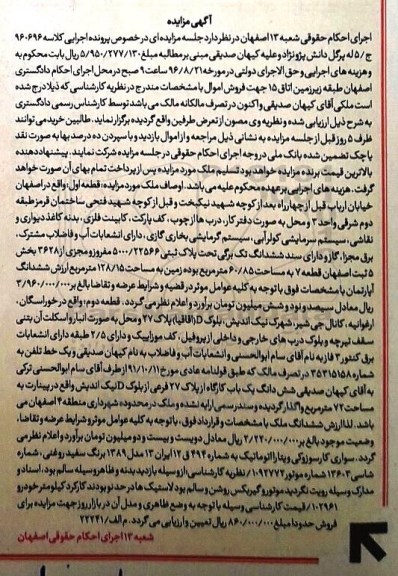 آگهی مزایده
اجرای احکام حقوقی شعبه ۱۳ اصفهان در نظر دارد جلسه مزایده ای در خصوص پرونده اجرایی کلاسه ۹۶۰۶۹۶
ج/۵ له پرگل دانش پژو نژاد و علیه کیهان صدیقی مبنی بر مطالبه مبلغ ۵/۹۵۰/۲۷۷/۱۳۰ ریال بابت محکوم به
و هزینه های اجرایی و حق الاجرای دولتی در مورخه ۹۶/۸/۲۱ ساعت ۹ صبح در محل اجرای احکام دادگستری
اصفهان طبقه زیرزمین اتاق ۱۵ جهت فروش اموال با مشخصات مندرج در نظریه کارشناسی که ذیلا درج شده
است ملکی آقای کیهان صدیقی و اکنون در تصرف مالکانه مالک می باشد توسط کارشناس رسمی دادگستری
به شرح ذیل ارزیابی شده و نظریه وی مصون از تعرض طرفین واقع گردیده برگزار نماید. طالبین خرید می توانند
ظرف ۵ روز قبل از جلسه مزایده به نشانی ذیل مراجعه و از اموال بازدید و با سپردن ده درصد بها به صورت نقد
یا چک تضمین شده بانک ملی در وجه اجرای احکام حقوقی در جلسه مزایده شرکت نمایند. پیشنهاد دهنده
بالاترین قیمت برنده مزایده خواهد بود تسلیم ملک مورد مزایده پس از پرداخت تمام بهای آن صورت خواهد
گرفت. هزینه های اجرایی بر عهده محکوم علیه می باشد. اوصاف ملک مورد مزایده: قطعه اول: واقع در اصفهان
خیابان ارباب قبل از چهارراه بعد از کوچه شهید نیکبخت و قبل از کوچه شهید فتحی ساختمان قرمز طبقه
دوم شرقی واحد ۳ و محل به صورت دفتر کار، درب ها از چوب، کف پارکت، کابینت فلزی، بدنه کاغذ دیواری و
نقاشی، سیستم سرمایشی کولر آبی، سیستم گرمایشی بخاری گازی، دارای انشعابات آب و فاضلاب مشترک،
برق مجزا، گاز و دارای سند ششدانگ تک برگی تحت پلاک ثبتی ۵۰۰۰/۲۲۵۶۶ مفروز و مجزی از ۳۶۲۸ بخش
۵ ثبت اصفهان قطعه ۷ به مساحت ۶۰/۸۵ مترمربع بوده زمین به مساحت ۱۲۸/۱۵ مترمربع ارزش ششدانگ
آپارتمان با مشخصات فوق با توجه به کلیه عوامل موثر در قضیه و شرایط عرضه و تقاضا بالغ بر ۳/۹۶۰/۰۰۰/۰۰۰
ریال معادل سیصد و نود و شش میلیون تومان برآورد و اعلام نظر می گردد. قطعه دوم: واقع در خوراسگان،
ارغوانیه، کانال جی شیر، شهرک نیک اندیش، بلوک D (اقاقیا) پلاک ۲۷ و محل به صورت انبار و اسکلت آن بتنی
سقف تیرچه و بلوک درب های خارجی و داخلی از پروفیل، کف موزاییک و دارای ۲/۵ طبقه دارای انشعابات
برق کنتور ۳ فاز به نام آقای سام ابوالحسنی و انشعابات آب و فاضلاب به نام کیهان صدیقی و یک خط تلفن به
شماره ۳۵۳۱۵۱۵۸ در تصرف مالک که طبق قولنامه عادی مورخ ۹۱/۱۰/۱۱ از طرف آقای سام ابوالحسنی ترکی
به آقای کیهان صدیقی شش دانگ یک باب کارگاه از پلاک ۲۷ فرعی از بلوک D نیک اندیش واقع در پینارت به
مساحت ۷۲ مترمربع واگذار گردیده و سند رسمی ارائه نشده و ملک در محدوده شهرداری منطقه ۴ اصفهان می
باشد. لذا ارزش ششدانگ ملک با مشخصات و قرارداد فوق، با توجه به کلیه عوامل موثر و شرایط عرضه و تقاضا،
وضعیت موجود بالغ بر ۲/۲۲۰/۰۰۰/۰۰۰ ریال معادل دویست و بیست و دو میلیون تومان برآورد و اعلام نظر می
گردد. سواری کار سوزوکی ویتارا اتوماتیک به شماره ۴۹۴ ق ۱۲ ایران ۱۳ مدل ۱۳۸۹ برنگ سفید روغنی، شماره
شاسی ۱۳۶۰۳ شماره موتور ۱۰۹۲۷۷۲/ نظریه کارشناسی: از وسیله بازدید بدنه و ظاهر وسیله سالم بود، اسناد و
مدارک وسیله رویت نگردید، موتور و گیربکس روشن و سالم بود لاستیک ها در حد نو بودند کارکرد کیلومتر خودرو
۱۰۲۹۶۱/ قیمت کارشناسی وسیله با توجه به وضع ظاهری و مدل آن در بازار روز جهت مزایده برای
فروش حدودا مبلغ ۸۶۰/۰۰۰/۰۰۰ ریال تعیین و ارزیابی می گردد. م الف/۲۲۲۴۱
شعبه ۱۳ اجرای احکام حقوقی اصفهان